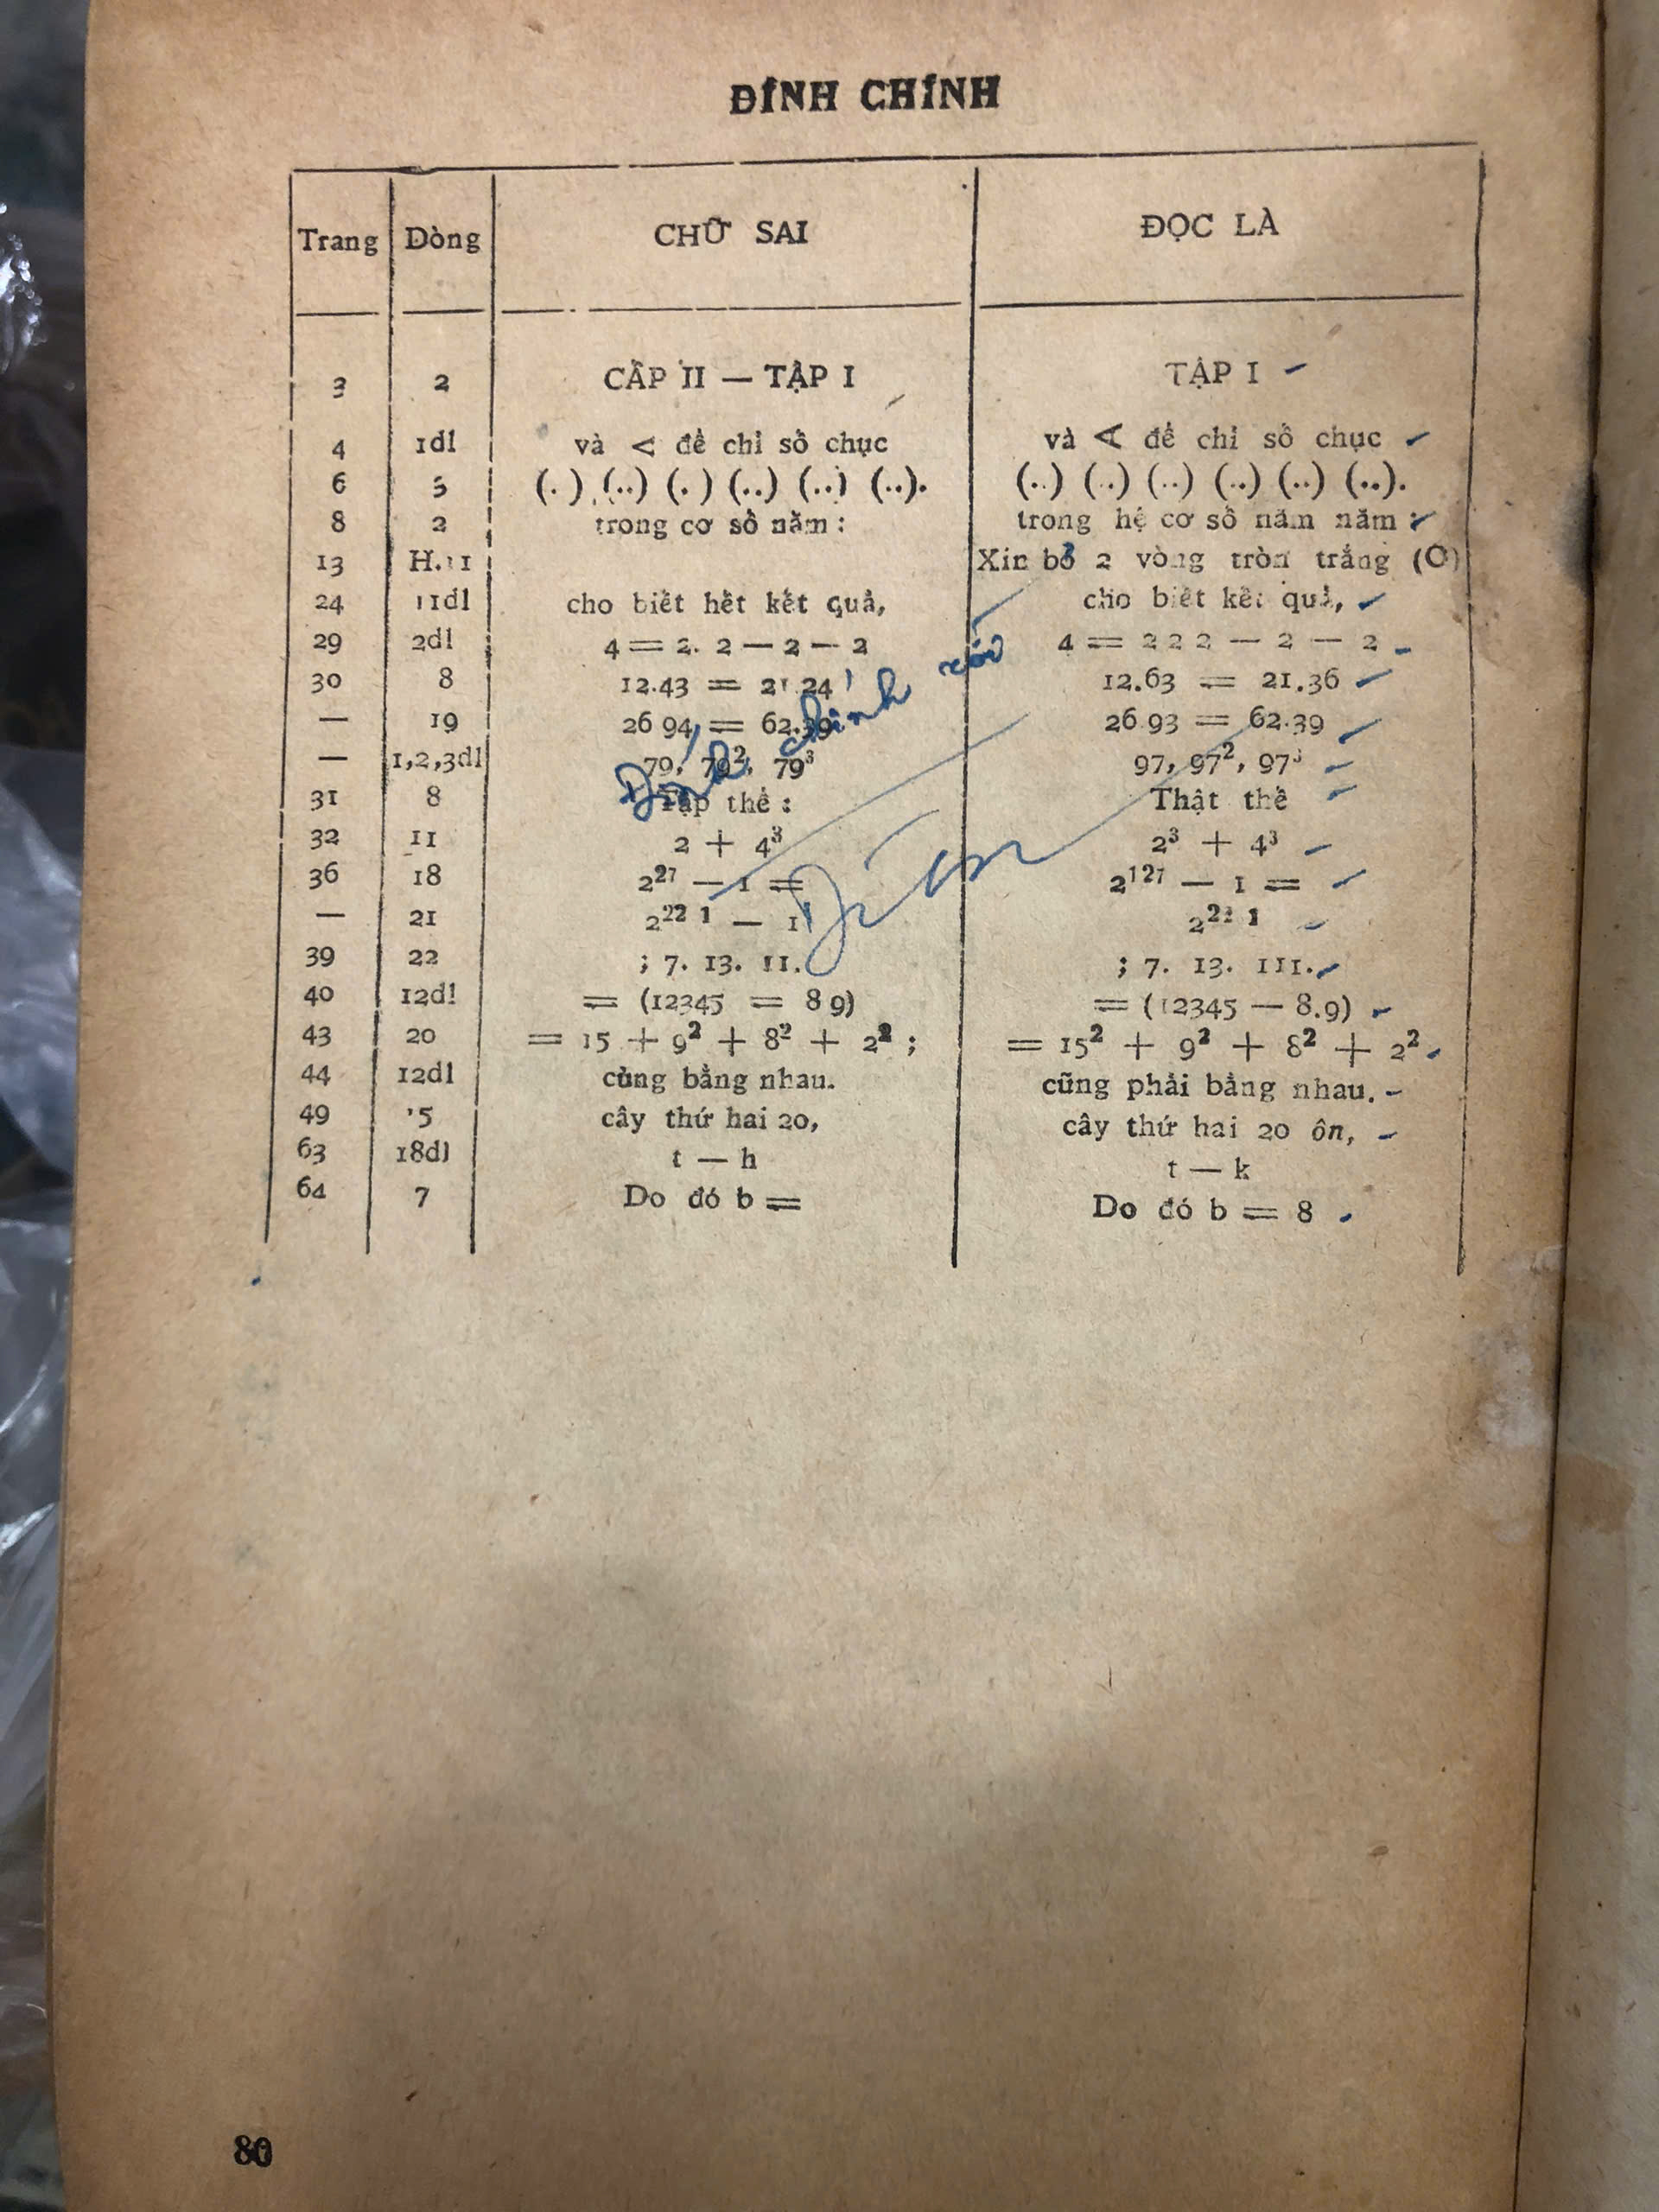 ĐÍNH CHÍNH
Trang Dòng CHỮ SAI ĐỌC LÀ
3 2 CẤP II — TẬP I TẬP I
4 1dl và < để chỉ số chục và < để chỉ số chục
6 5 (.) (..) (.) (..) (..) (..). (..) (..) (..) (..) (..) (..).
8 2 trong cơ số năm : trong hệ cơ số năm năm :
13 H.11 Xin bỏ 2 vòng tròn trắng (O)
24 11dl cho biết hết kết quả, cho biết kết quả,
29 2dl 4 = 2. 2 — 2 — 2 4 = 2 2 2 — 2 — 2
30 8 12.43 = 21 24 12.63 = 21.36
— 19 26 94 = 62.39 26 93 = 62.39
— 1,2,3dl 79, 79², 79³ 97, 97², 97³
31 8 Tập thể : Thật thế
32 11 2 + 4³ 2³ + 4³
36 18 2²⁷ — 1 = 2¹²⁷ — 1 =
— 21 2²² ¹ — 1 2²² ¹
39 22 ; 7. 13. 11. ; 7. 13. 111.
40 12dl = (12345 = 8 9) = (12345 — 8.9)
43 20 = 15 + 9² + 8² + 2² ; = 15² + 9² + 8² + 2²
44 12dl củng bằng nhau. cũng phải bằng nhau.
49 5 cây thứ hai 20, cây thứ hai 20 ôn,
63 18dl t — h t — k
64 7 Do đó b = Do đó b = 8
Đính chính rồi
80